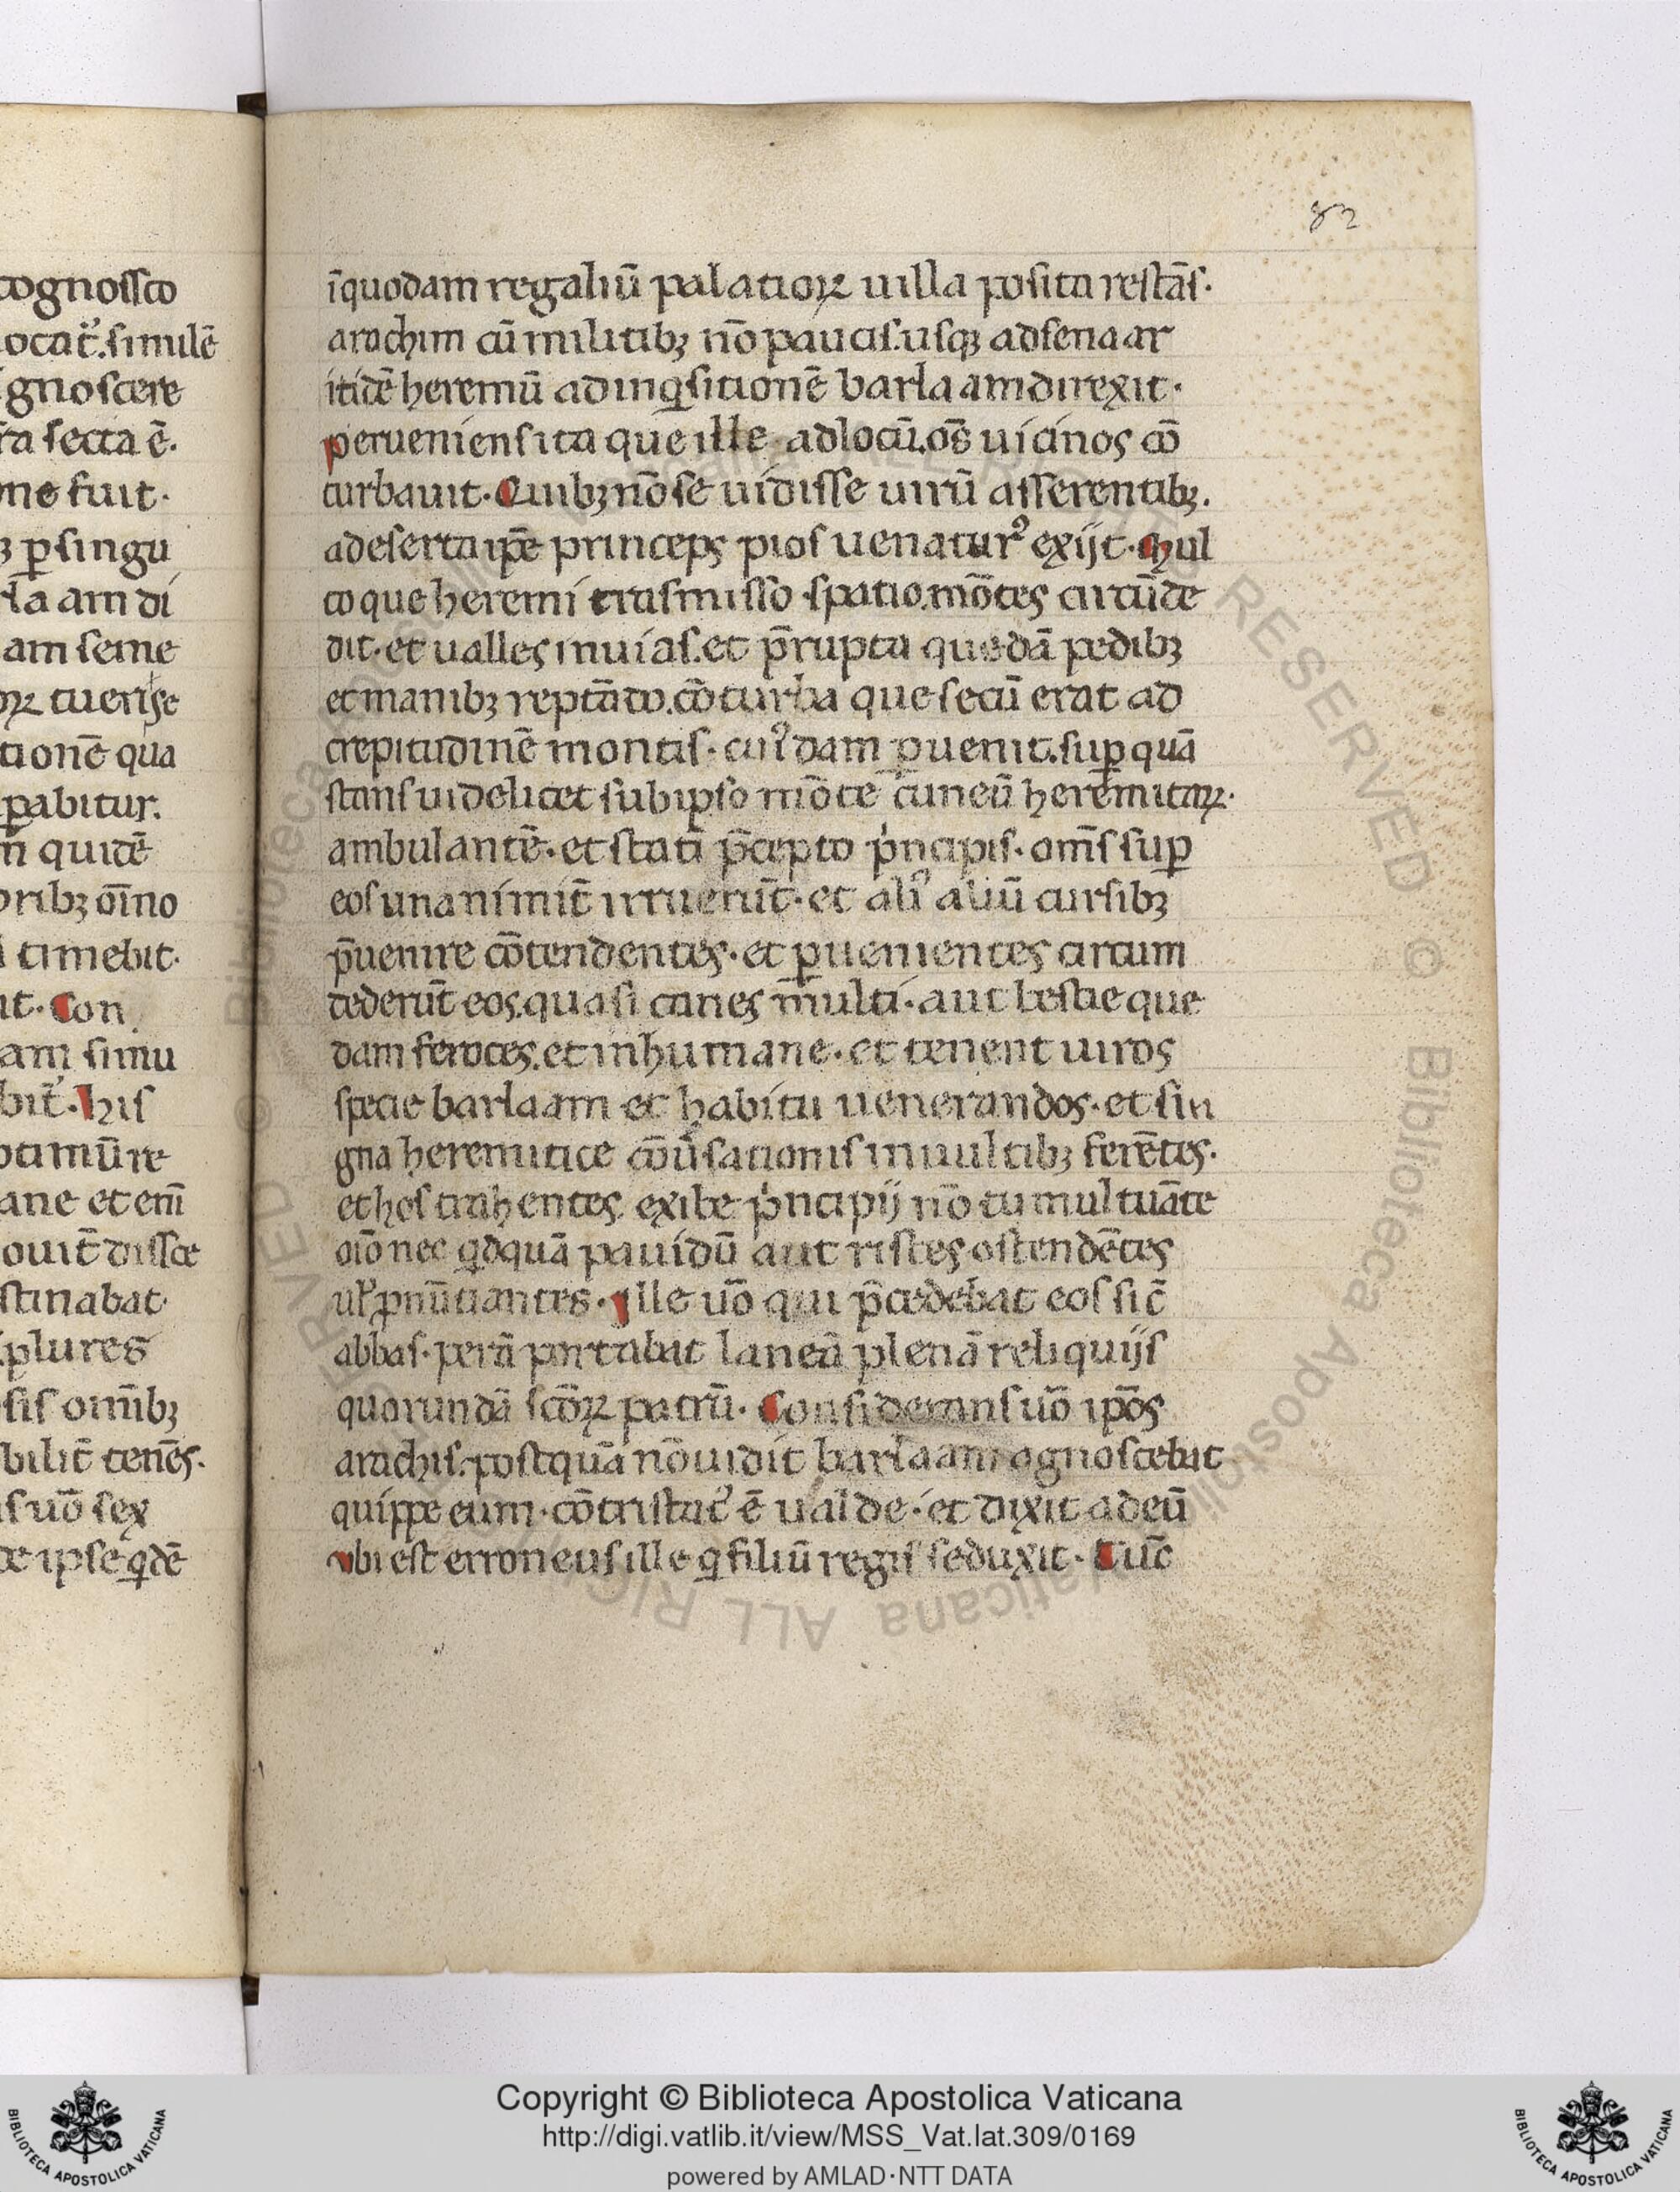 82
cognosco
ocat᷒. similē
ignoscere
r̄a secta ē.
one fuit.
ꝫ ꝑ singu
rla am di
am seme
oꝝ tueri se
tionē qua
pabitur.
m̄ quidē
oribꝫ oīno
timebit.
it. Con
am simu
bit᷒. his
ptimū re
ane et enī
ouit̄ disce
stinabat.
plures
sis omībꝫ
bilit̄ tenēs.
s uō sex
e ipse qdē
īquodam regaliū palatioꝝ uilla posita restās.
arachim cū militibꝫ nō paucis. usqꝫ ad senaar
itidē heremū ad inqsitionē barlaam direxit.
perueniens itaque ille ad locū. oēs uicinos cō
turbauit. Quibꝫ nō se uidisse uirū asserentibꝫ.
ad deserta ipē princeps pios uenatur᷒ exijt. Mul
toque heremi trāsmisso spatio. mōtes circūde
dit. et ualles inuias. et p̄rupta quedā pedibꝫ
et manibꝫ reptādo. cō turba que secū erat ad
crepitudinē montis. cui᷒dam ꝑuenit. suꝑ quā
stans uidelicet sub ipso mōte cuneū heremitaꝝ.
ambulantē. et statī p̄cepto p'ncipis. om̄s suꝑ
eos unanimit̄ irruerūt. et ali᷒ aliū cursibꝫ
p̄uenire cōtendentes. et ꝑuenientes circum
dederūt eos. quasi canes m̄ulti. aut bestie que
dam feroces. et inhumane. et tenent uiros
specie barlaam et habitu uenerandos. et sin
gna heremitice cōu̓sationis in uultibꝫ ferētes.
et hos trahentes exibe p'ncipij nō tumultuāte
oīo nec qdquā pauidū aut ristes ostendētes
ul̓ ꝓnūtiantes. Ille uō qui p̄cedebat eos sic̄
abbas. perā portabat laneā plenā reliquijs
quorundā scōꝝ patrū. Considerans uō ipōs
arachis. postquā nō uidit barlaam agnoscebat
quippe eum. cōtristat᷒ ē ualde. et dixit ad eū
ubi est erroneus ille q filiū regis seduxit. Tūc
Copyright © Biblioteca Apostolica Vaticana
http://digi.vatlib.it/view/MSS_Vat.lat.309/0169
powered by AMLAD·NTT DATA
BIBLIOTECA APOSTOLICA VATICANA
BIBLIOTECA APOSTOLICA VATICANA